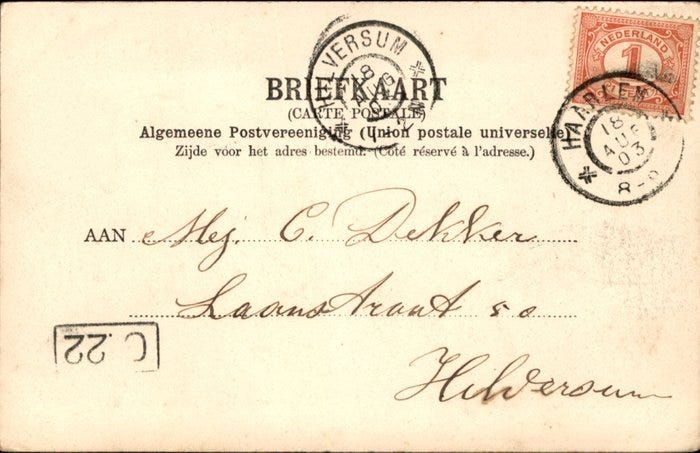 NEDERLAND
1
HILVERSUM
18
AUG
HAARLEM
18
AUG
03
BRIEFKAART
(CARTE POSTALE)
Algemeene Postvereeniging (Union postale universelle)
Zijde voor het adres bestemd. (Coté réservé à l'adresse.)
AAN Mej. C. Dekker
Laanstraat
Hilversum
C. 22